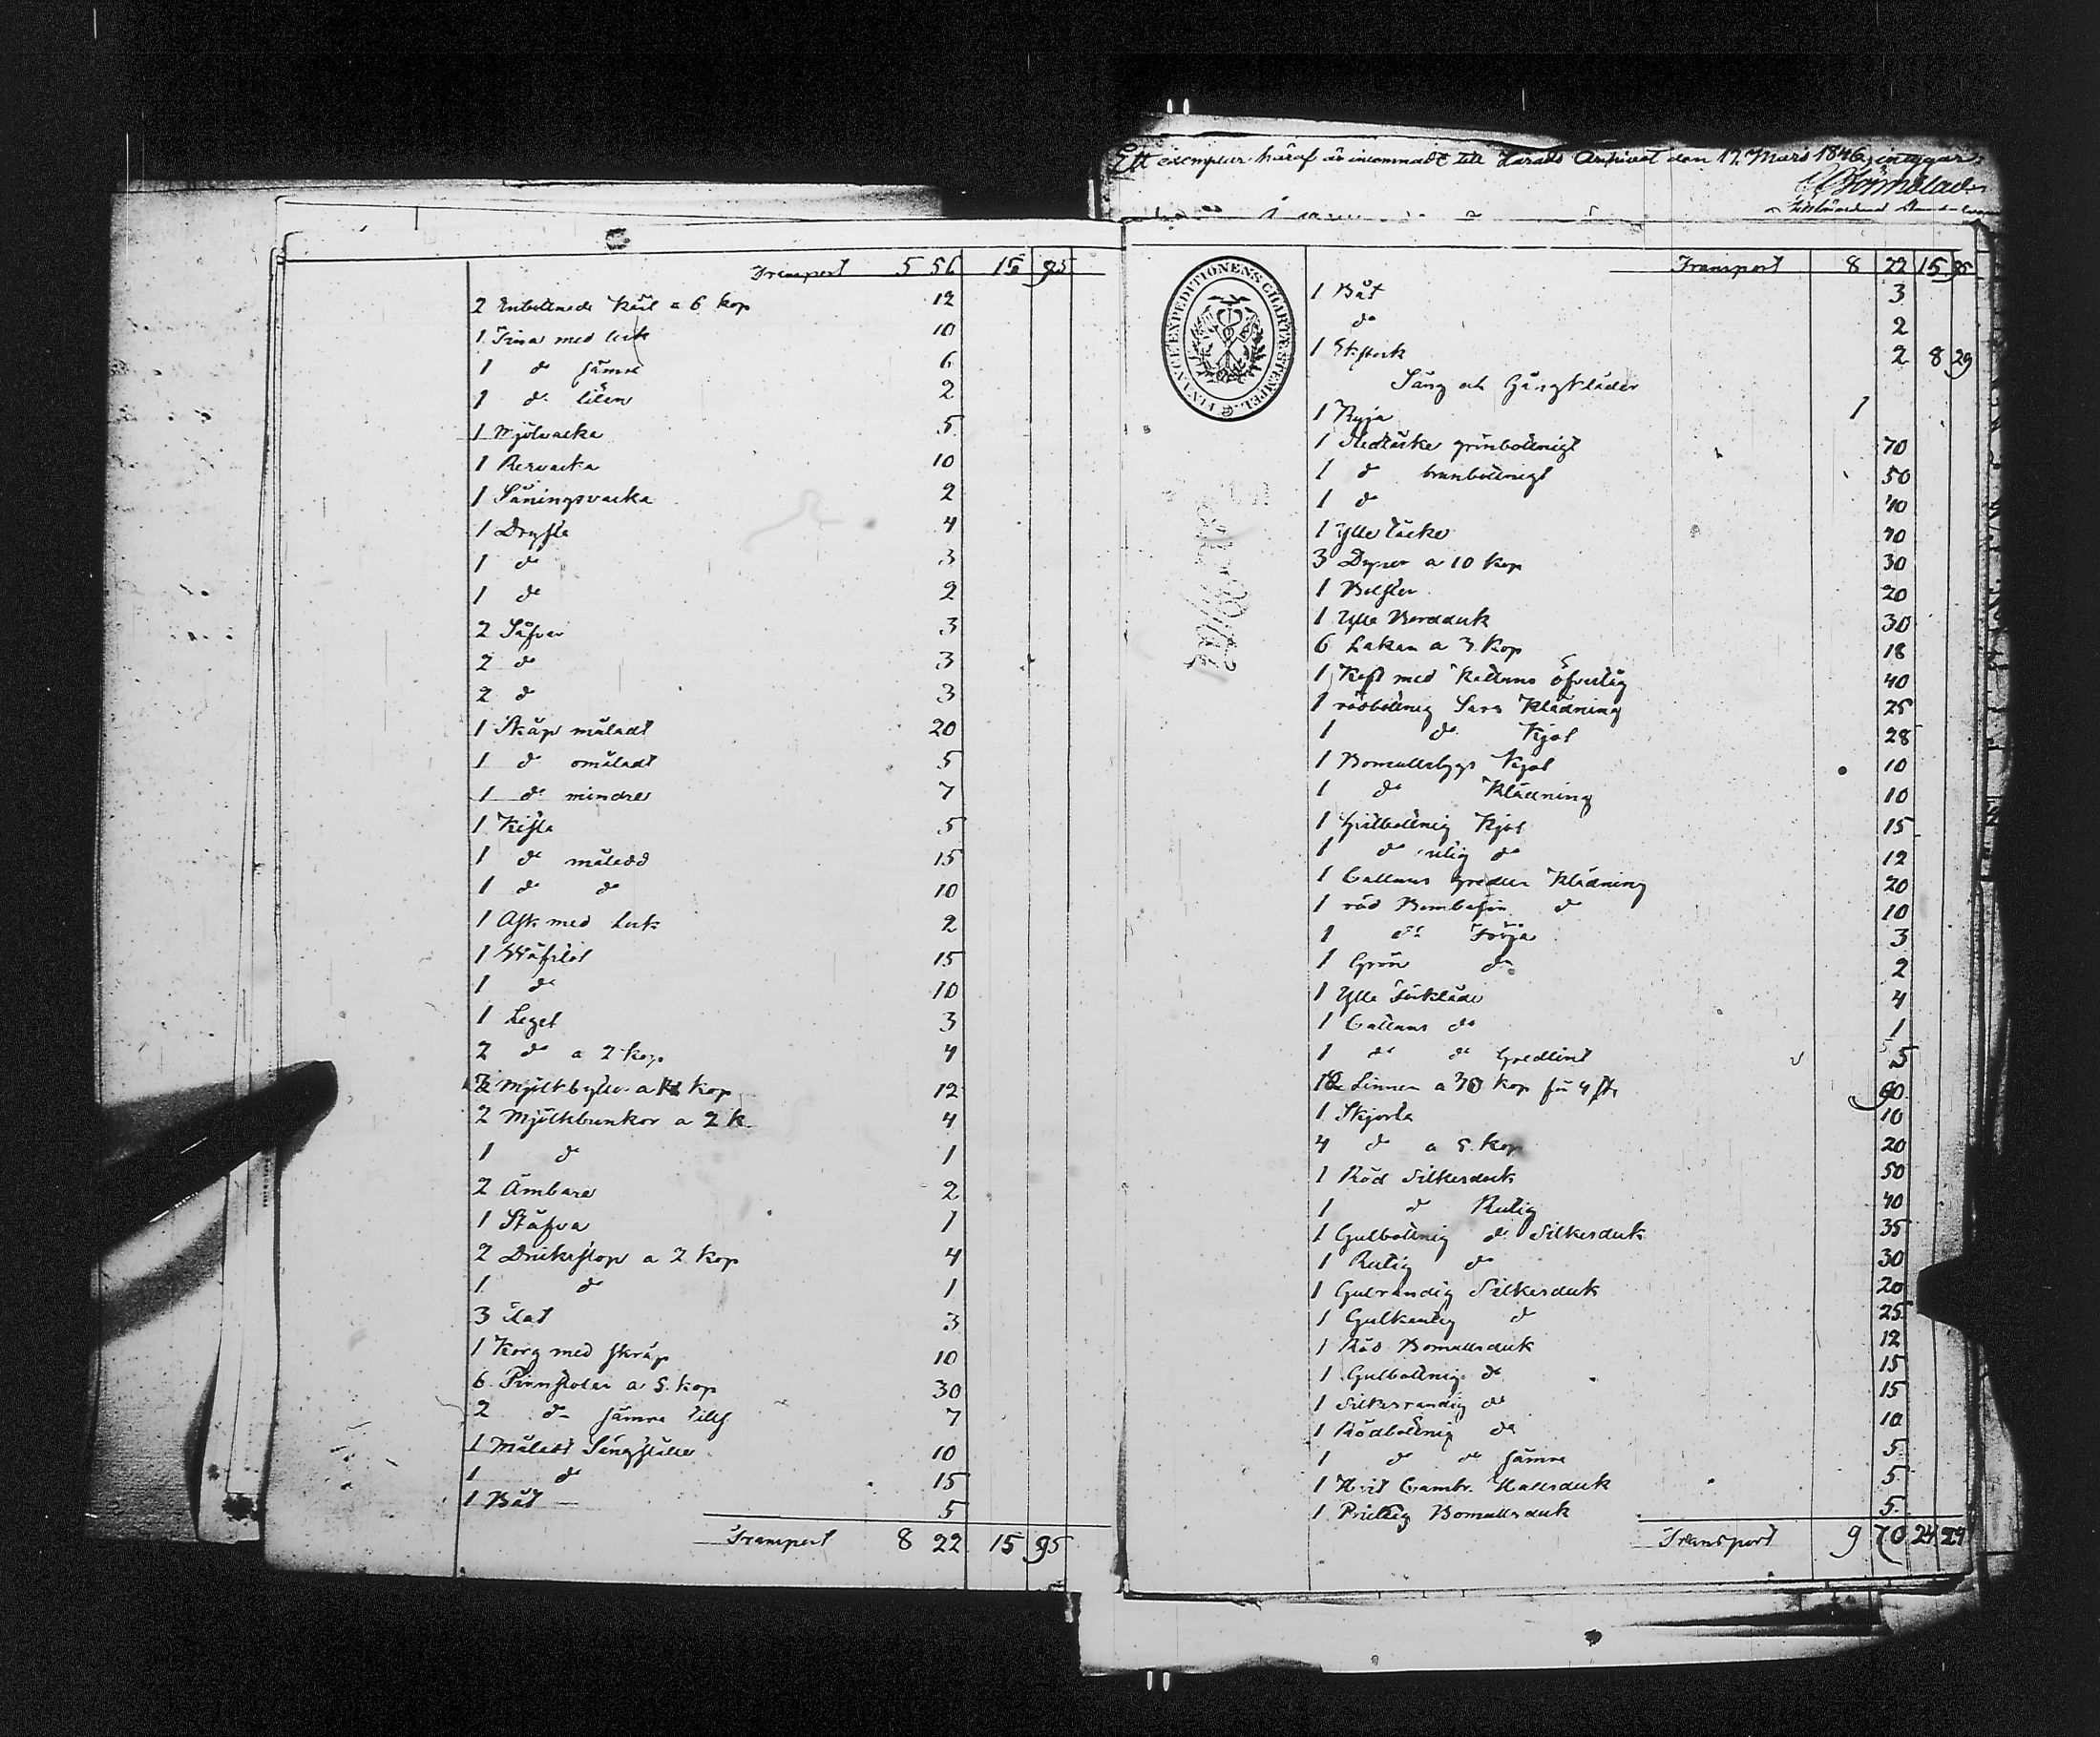 Transport 5 56 15 95
2 Enbottnade Käril a 6 kop 12
1 Tina med lock 10
1 do sämre 6
1 do liten 2
1 Mjölvacka 5
1 10
1 Såningsvacka 2
1 Dryfta 4
1 do 3
1 do 2
2 Såfvar 3
2 do 3
2 do 3
1 Skåp måladt 20
1 do omåladt 5
1 do mindre 7
1 Kista 5
1 do målad 15
1 do do 10
1 Ask med Lock 2
1 15
1 do 10
1 Legel 3
2 do a 2 kop 4
Mjölkbytter a kop 12
2 Mjölkbunkor a 2 k. 4
1 do 1
2 Ämbare 2
1 Stäfva 1
2 Drickstop a 2 kop 4
1 do 1
3 3
1 Korg med skräp 10
6 Pinnstolar a 5 kop 30
2 do sämre 7
1 Måladt Sängställe 10
1 do 15
1 Båt 5
Transport 8 22 15 95
Ett exemplar häraf är inkommadt till Härads Arkivet den 17 Mars 1846, intygar
FINANCE EXPEDITIONENS CHARTÆ STEMPEL
Transport 8 22 15 95
1 Båt 3
do 2
1 Ekstock 2 8 29
Säng och Gångkläder
1 Ryja 1
1 Stedtäcke grönbottnigt 70
1 do brunbottnigt 50
1 do 40
1 Ylle täcke 40
3 Dynor a 10 kop 30
1 Bolster 20
1 Ylle Bordduk 30
6 Lakan a 3 kop 18
1 med Kattuns öfvertåg 40
1 rödbottnig Sars Klädning 25
1 do Kjol 28
1 Bomullstygs Kjol 10
1 do Klädning 10
1 Gulbottnig Kjol 15
1 do rutig do 12
1 Cattuns Gredlin Klädning 20
1 röd Bombasin do 10
1 do Tröja 3
1 Grön do 2
1 Ylle Förkläde 4
1 Cattuns do 1
1 do do Gredlint 5
Linnen a kop för st. 60
1 Skjorta 10
4 do a 5 kop 20
1 Röd Silkesduk 50
1 do Rutig 40
1 Gulbottnig do Silkesduk 35
1 Rutig do 30
1 Gulrandig Silkesduk 20
1 Gulkantig do 25
1 Röd Bomullsduk 12
1 Gulbottnig do 15
1 Silkesrandig do 15
1 Rödbottnig do 10
1 do do sämre 5
1 Hvit Cambr. Halsduk 5
1 Prickig Bomullsduk 5
Transport 9 70 24 24